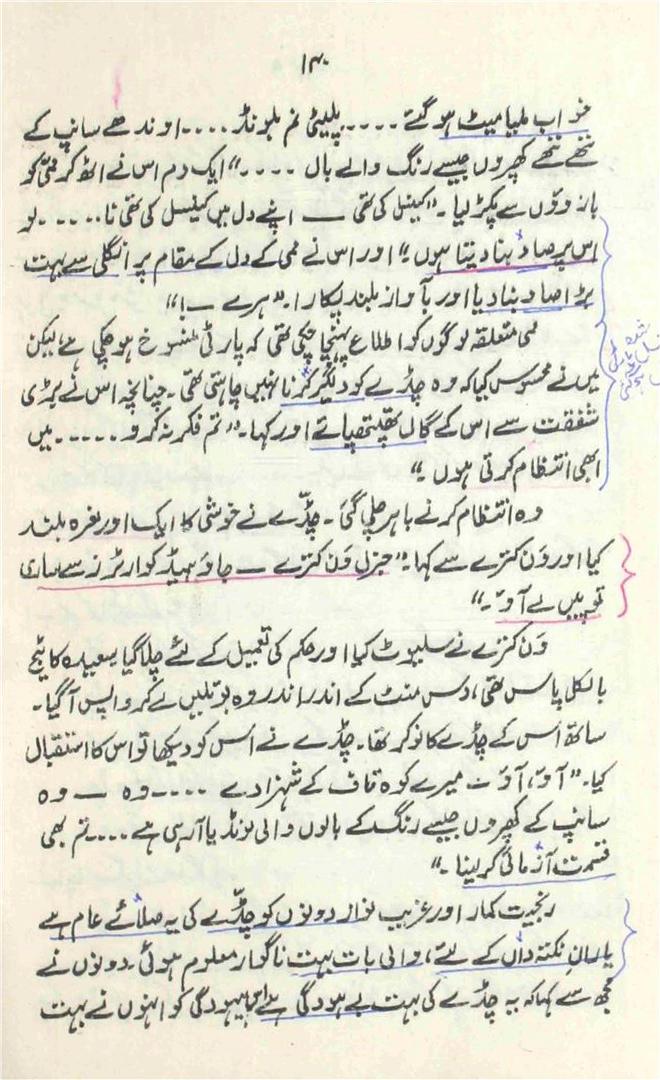 ۱۳۰
خواب ملیامیٹ ہو گئے ۔۔۔۔ پلیٹی نم بلونڈ ۔۔۔۔ اوندھے سانپ کے
ننھے ننھے کھپروں جیسے رنگ والے بال ۔۔۔۔" ایک دم اس نے اٹھ کر ممّی کو
بازوؤں سے پکڑ لیا۔ "کینسل کی تھی — اپنے دل میں کینسل کی تھی نا ۔۔۔۔۔ لو
اس پر صاد بنا دیتا ہوں" اور اس نے ممی کے دل کے مقام پر انگلی سے بہت
بڑا صاد بنا دیا اور بآواز بلند پکارا۔ "ہرے —!"
ممی متعلقہ لوگوں کو اطلاع پہنچا چکی تھی کہ پارٹی منسوخ ہو چکی ہے، لیکن
میں نے محسوس کیا کہ وہ چڈے کو دلگیر کرنا نہیں چاہتی تھی۔ چنانچہ اس نے بڑی
شفقت سے اس کے گال تھپتھپائے اور کہا۔ "تم فکر نہ کرو ۔۔۔۔۔ میں
ابھی انتظام کرتی ہوں۔"
وہ انتظام کرنے باہر چلی گئی۔ چڈّے نے خوشی کا ایک اور نعرہ بلند
کیا اور وَن کترے سے کہا۔ "جنرل وَن کترے — جاؤ ہیڈ کوارٹرز سے ساری
توپیں لے آؤ۔"
وَن کترے نے سلیوٹ کیا اور حکم کی تعمیل کے لئے چلا گیا۔ سعیدہ کاٹیج
بالکل پاس تھی، دس منٹ کے اندر اندر وہ بوتلیں لے کر واپس آ گیا۔
ساتھ اس کے چڈے کا نوکر تھا۔ چڈے نے اس کو دیکھا تو اس کا استقبال
کیا۔ "آؤ، آؤ — میرے کوہ قاف کے شہزادے ۔۔۔۔ وہ — وہ
سانپ کے کھپروں جیسے رنگ کے بالوں والی لونڈیا آ رہی ہے ۔۔۔۔ تم بھی
قسمت آزمائی کر لینا۔"
رنجیت کمار اور غریب نواز دونوں کو چڈّے کی یہ صلائے عام ہے
یارانِ نکتہ داں کے لئے، والی بات بہت ناگوار معلوم ہوئی۔ دونوں نے
مجھ سے کہا کہ یہ چڈے کی بہت بے ہودگی ہے اس بیہودگی کو انہوں نے بہت